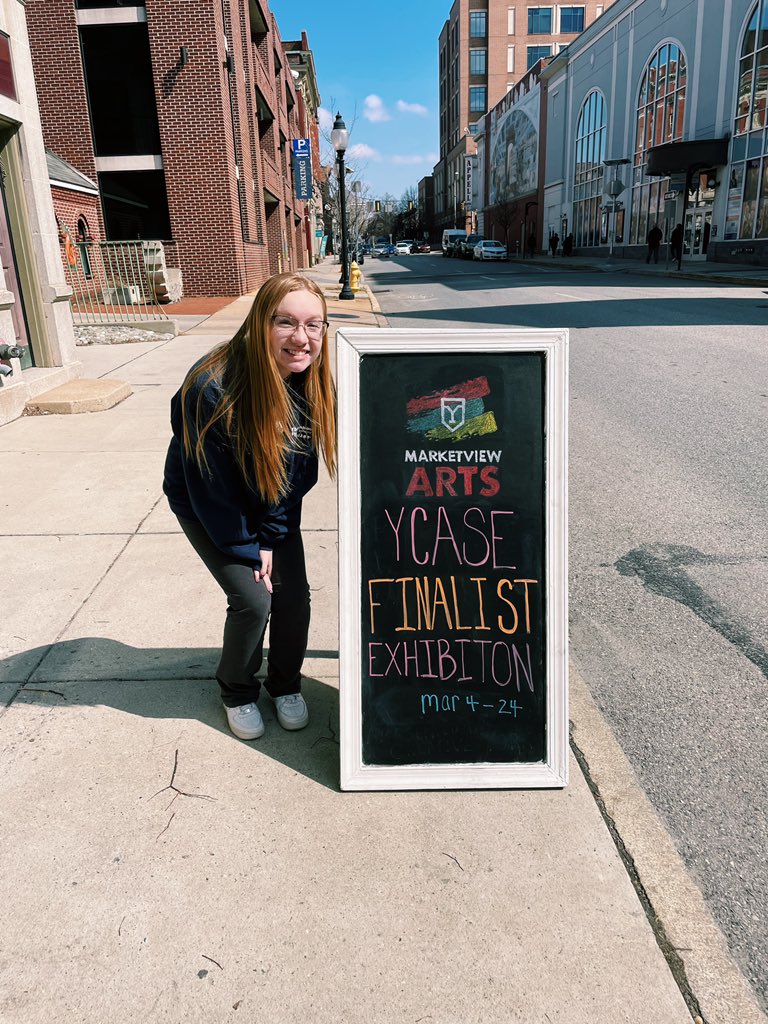 P
PARKING
APPELL
Y
MARKETVIEW
ARTS
YCASE
FINALIST
EXHIBITON
mar 4-24